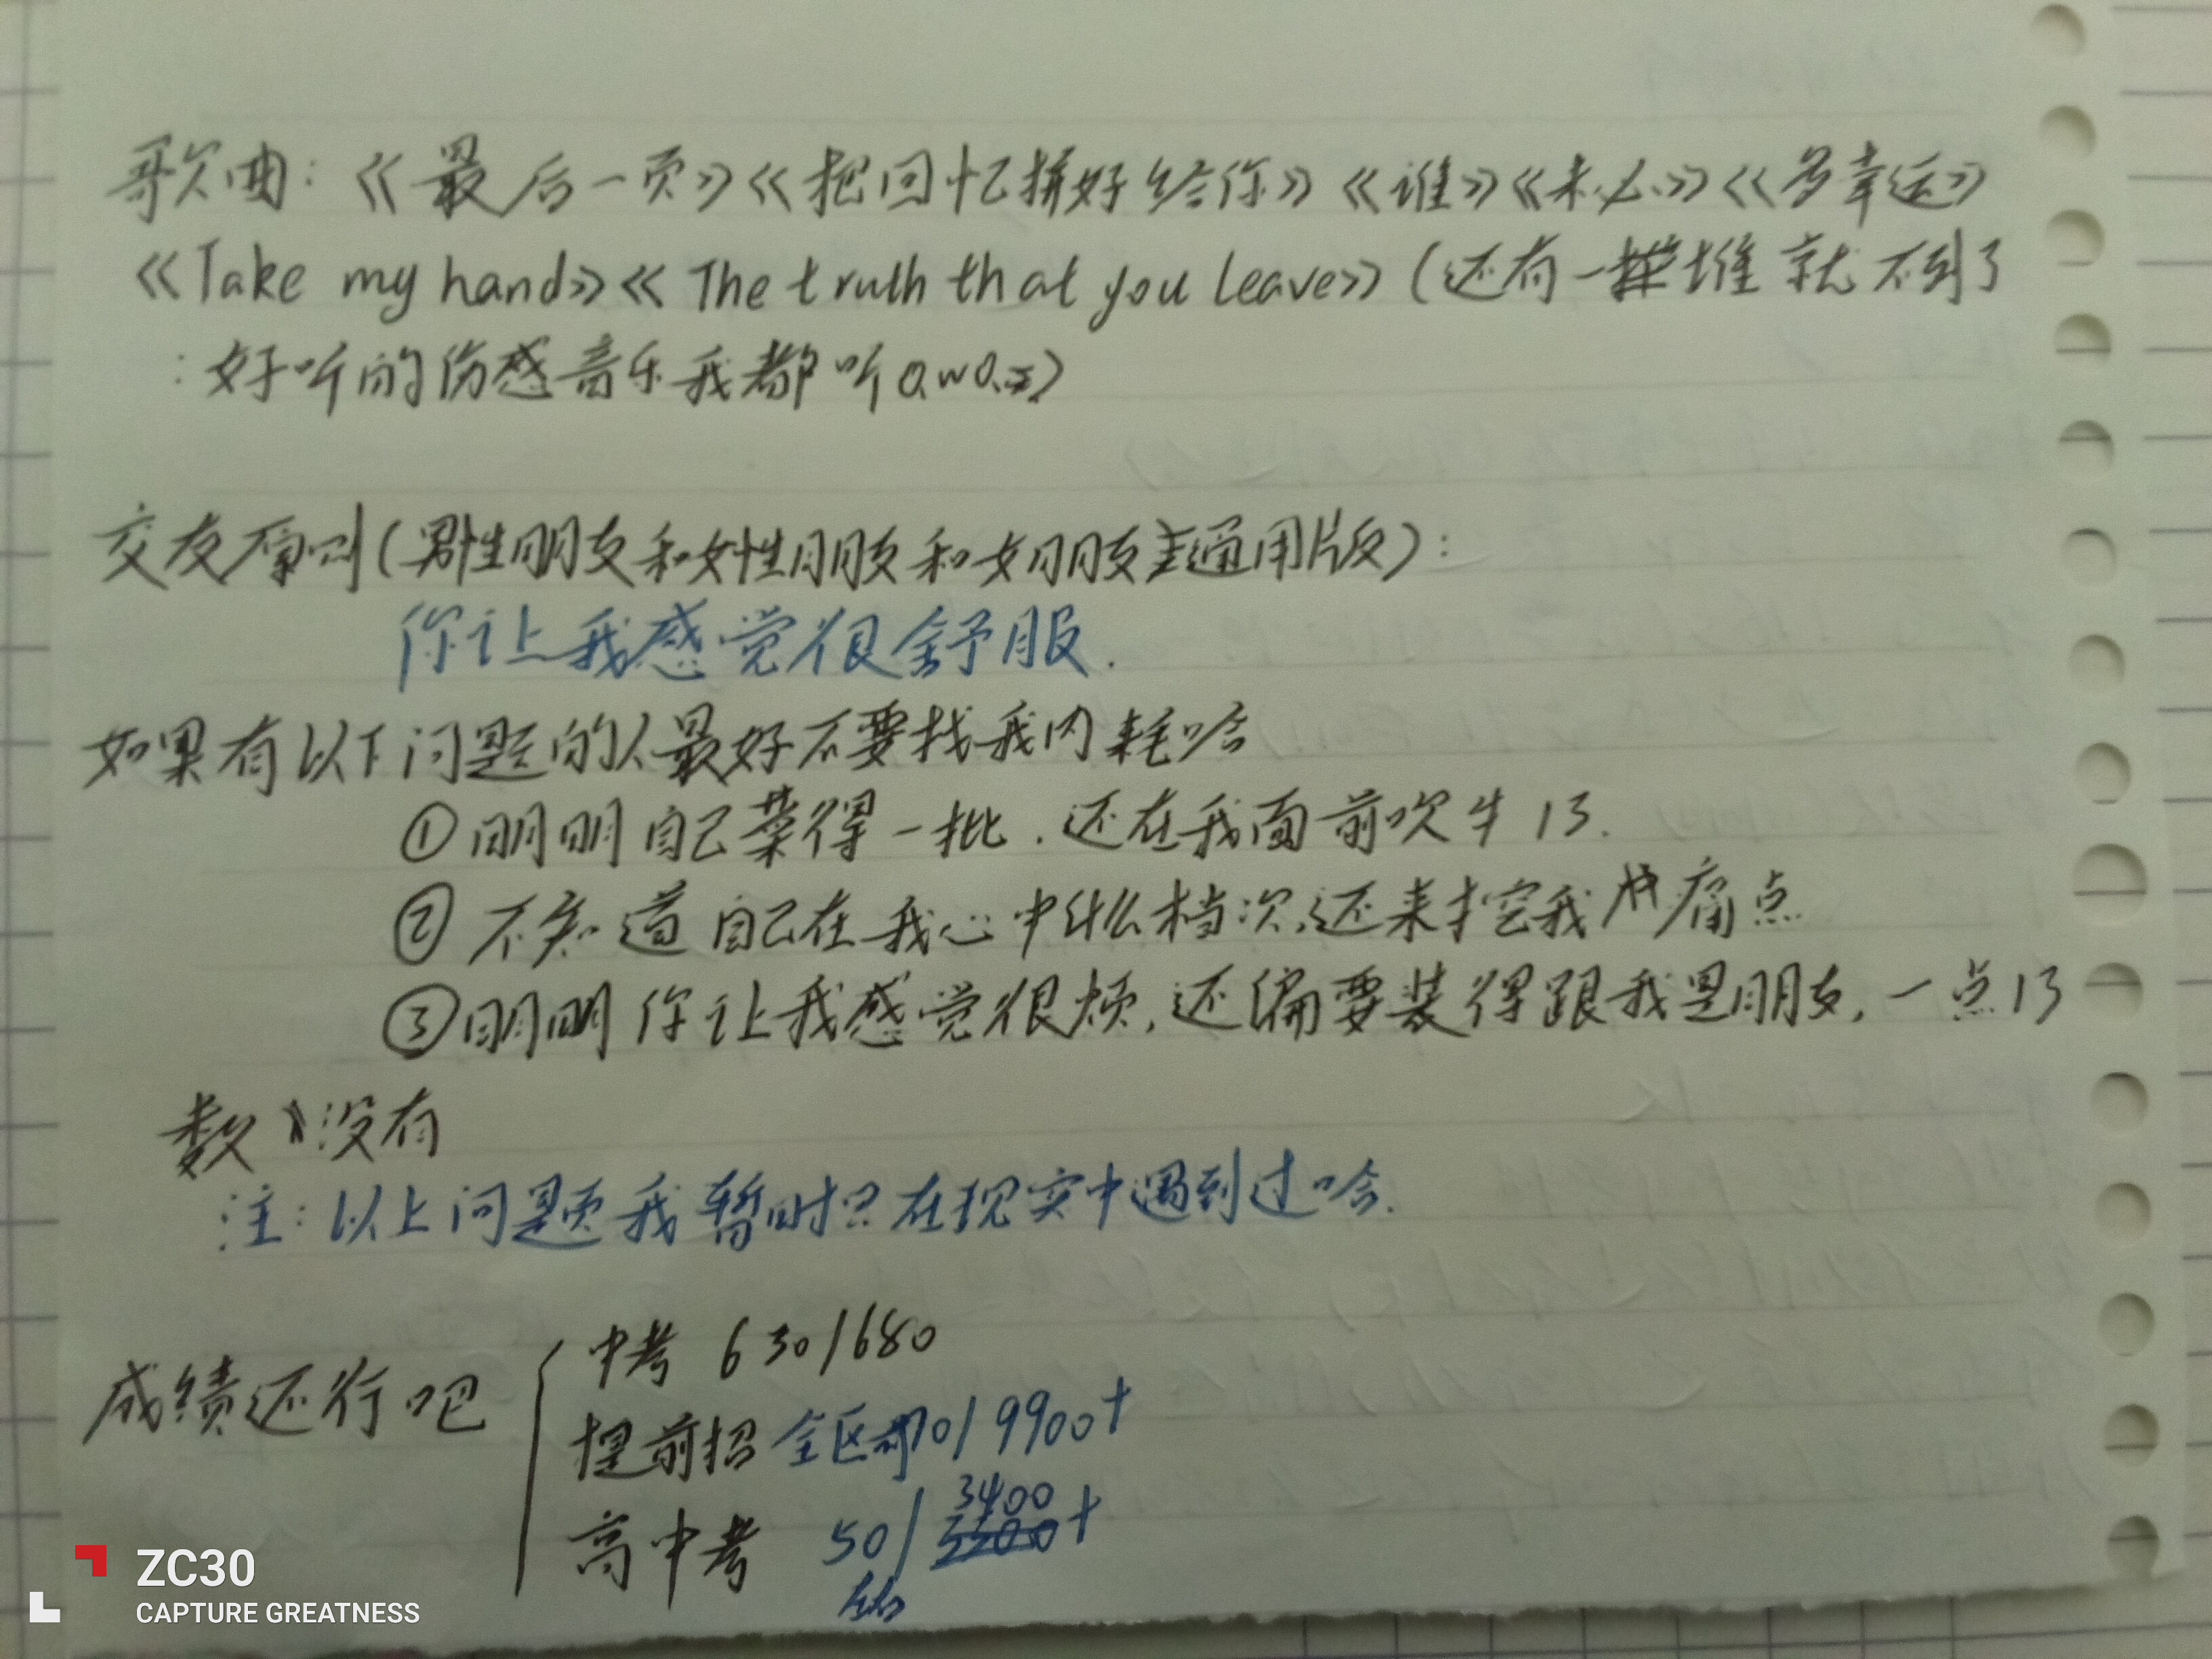 歌曲:《最后一页》《把回忆拼好给你》《谁》《未必》《多幸运》
《Take my hand》《The truth that you leave》(还有一堆就不到了
:好听的伤感音乐我都听O.wO.)
交友原则(男性朋友和女性朋友和女朋友通用版):
你让我感觉很舒服.
如果有以下问题的人最好不要找我内耗哈
①明明自己菜得一批.还在我面前吹牛13.
②不知道自己在我心中什么档次,还来挖我痛点
③明明你让我感觉很烦,还偏要装得跟我是朋友,一点13
数没有
注:以上问题我暂时只在现实中遇到过哈.
成绩还行吧
中考 630/680
提前招 全区前70/9900+
高中考 50/3400+
ZC30
CAPTURE GREATNESS